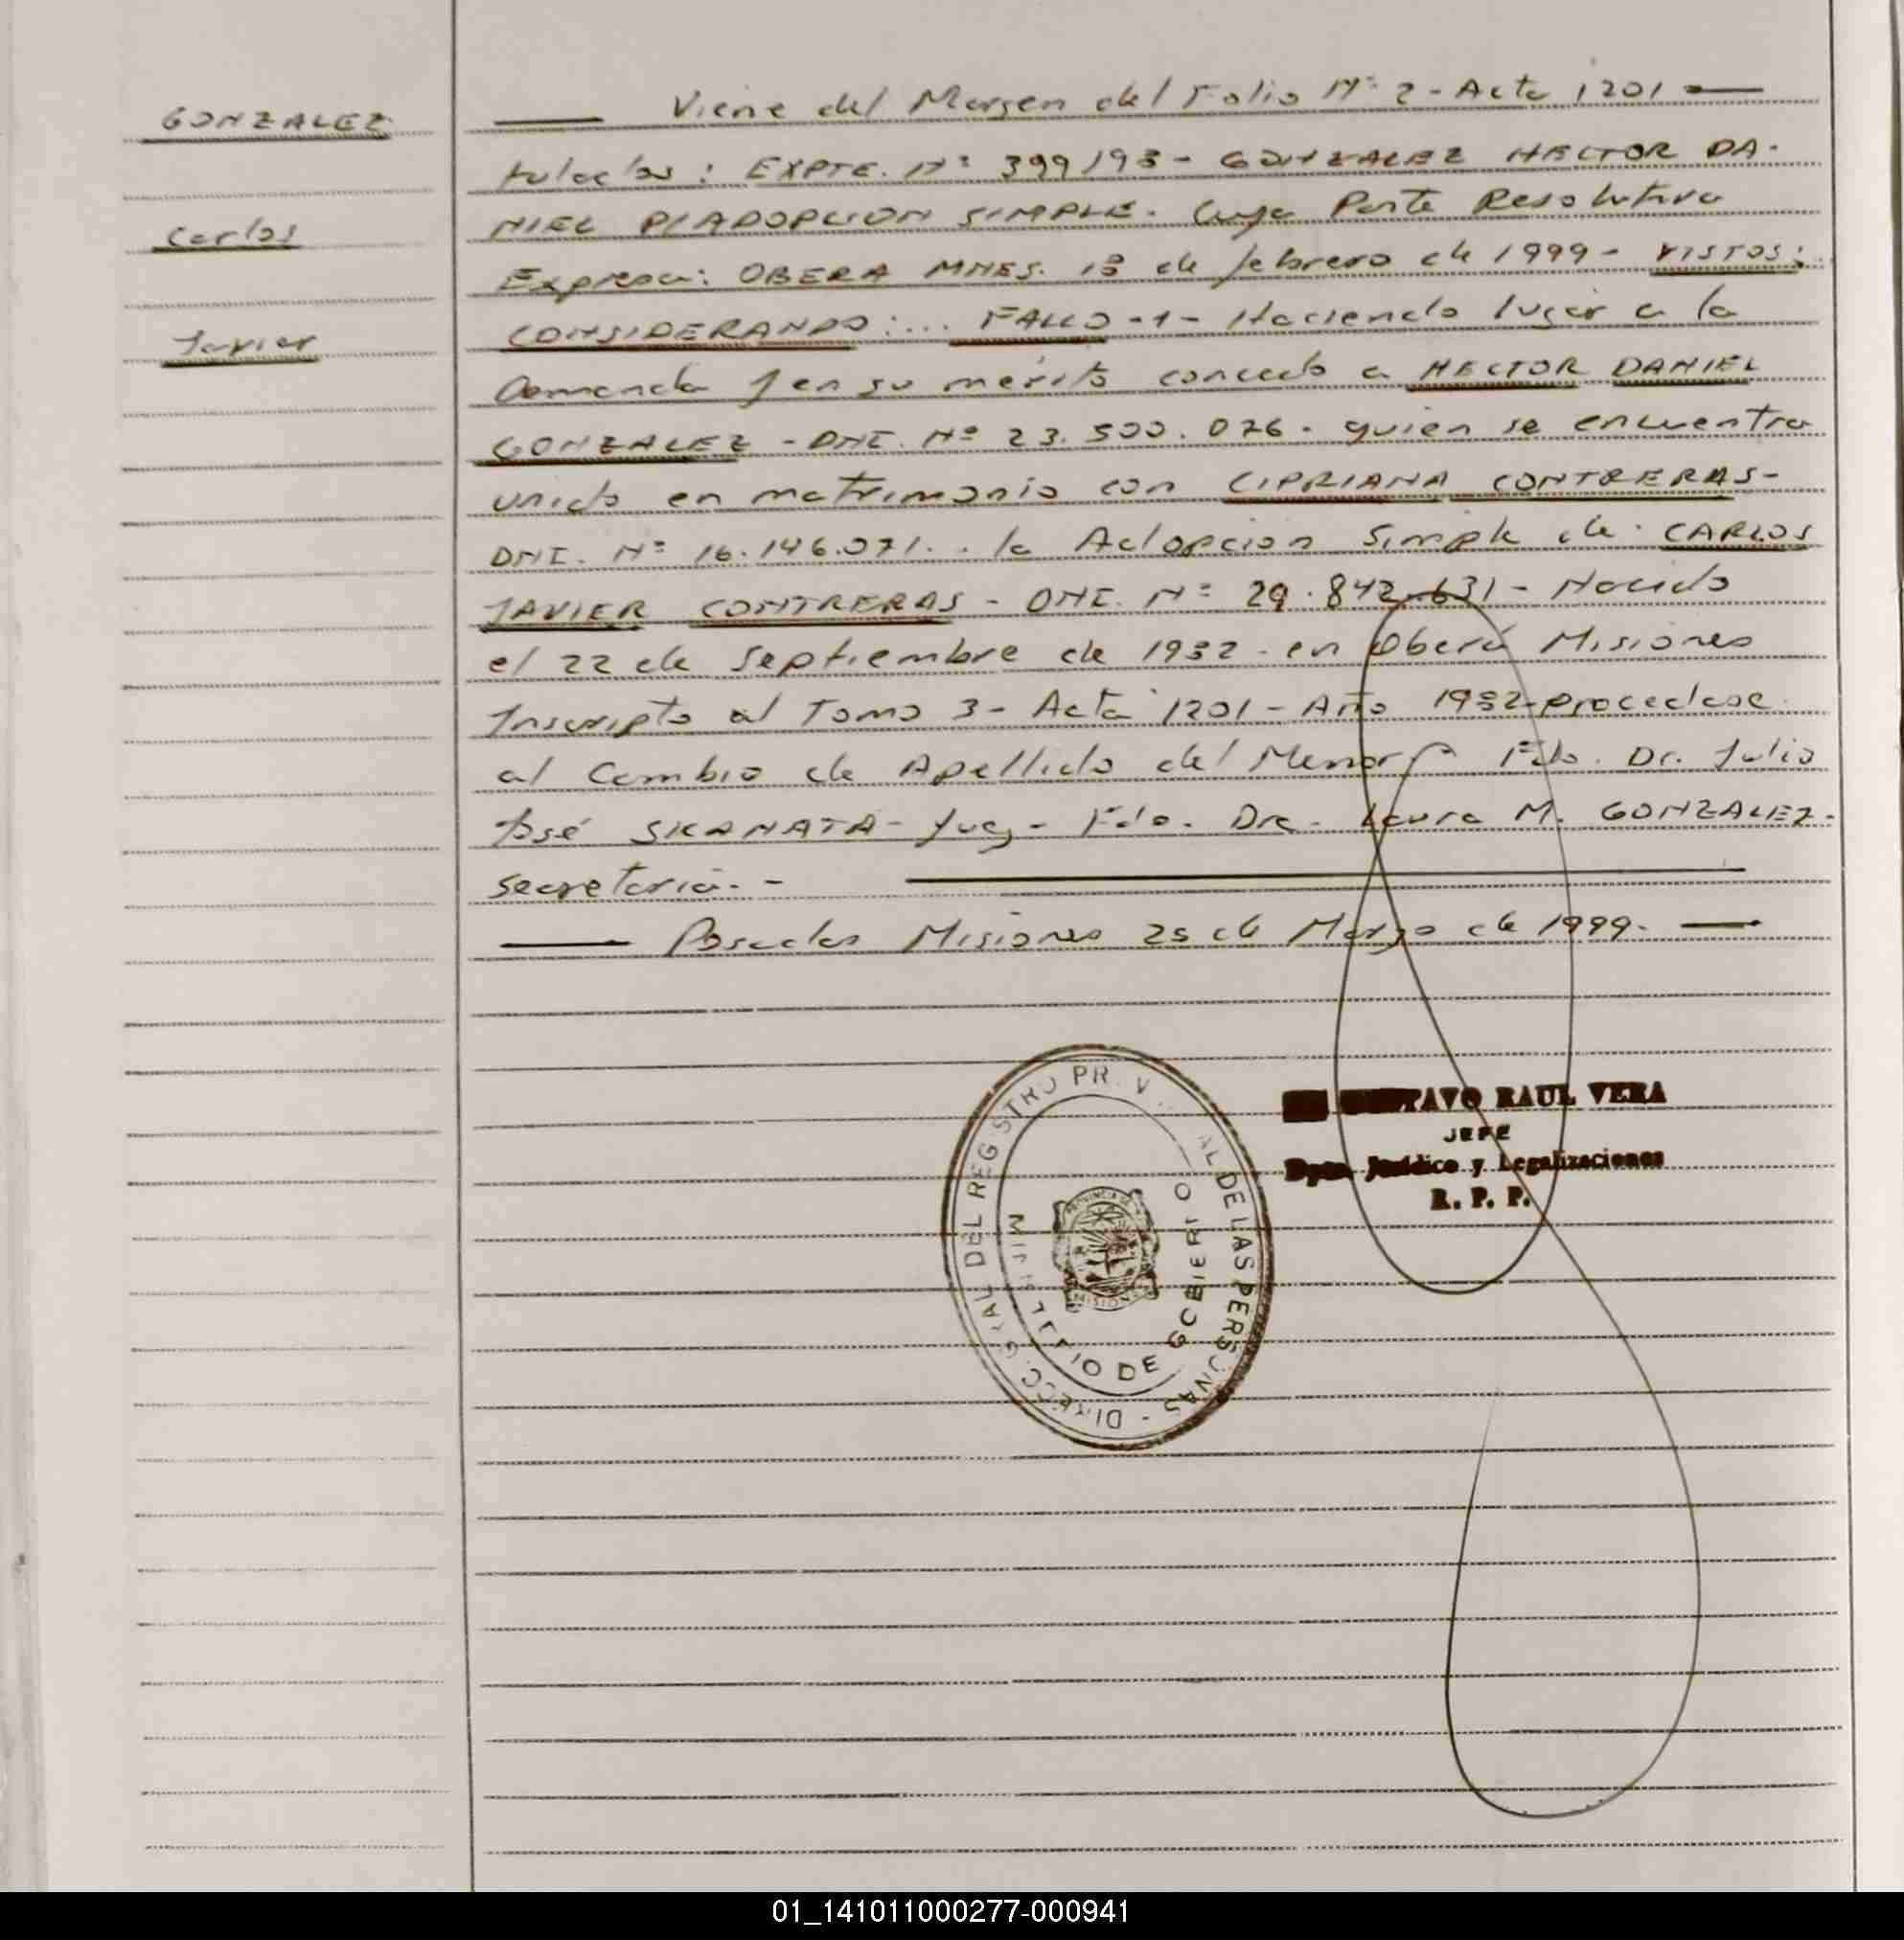 GONZALEZ
Carlos
Javier
Viene del Margen del Folio Nº 2 - Acta 1201
tulados: EXPTE. Nº 399/98 - GONZALEZ HECTOR DA-
NIEL P/ADOPCION SIMPLE. Cuya Parte Resolutiva
Expresa: OBERA MNES. 18 de febrero de 1999 - VISTOS;
CONSIDERANDO:... FALLO -1- Haciendo lugar a la
Demanda y en su mérito concedo a HECTOR DANIEL
GONZALEZ - DNI. Nº 23.500.076. quien se encuentra
unido en matrimonio con CIPRIANA CONTRERAS-
DNI. Nº 16.146.071. la Adopcion Simple de CARLOS
JAVIER CONTRERAS - DNI. Nº 29.842.631 - Nacido
el 22 de Septiembre de 1982 - en Oberá Misiones
Inscripto al Tomo 3 - Acta 1201 - Año 1982 - procedase
al Cambio de Apellido del Menor Fdo. Dr. Julio
José SKANATA - Juez - Fdo. Dra. Laura M. GONZALEZ.
secretaria.-
Posadas Misiones 25 de Marzo de 1999.
TAVO RAUL VERA
JEFE
Dpto. Jurídico y Legalizaciones
R. P. P.
DEL REGISTRO
DE LAS PERSONAS
DE GOBIERNO
PROVINCIA DE
MISIONES
01_141011000277-000941